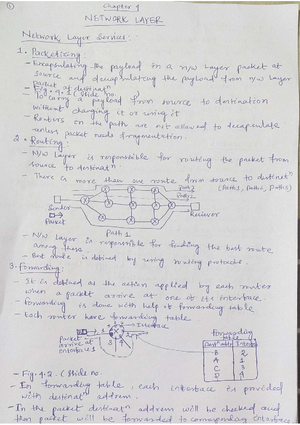 ①
Chapter 4
NETWORK LAYER
Network Layer Services
1. Packetizing
- Encapsulating the payload in a n/w layer packet at
source and decapsulating the payload from n/w layer
packet at destinatn
- Fig. 4.1 (Slide no.
- To carry a payload from source to destination
without changing it or using it
- Routers on the path are not allowed to decapsulate
unless packet needs fragmentation.
2. Routing:
- N/w Layer is responsible for routing the packet from
source to destinatn
- There is more than one route from source to destinatn
(Path1, Path2, Path3)
Path3
Path2
Sender
Reciever
Packet
Path 1
- N/w Layer is responsible for finding the best route
among these
- Best route is defined by using routing protocols.
3. Forwarding:
- It is defined as the action applied by each router
when a packet arrive at one of its interface.
- Forwarding is done with help of forwarding table
- Each router have forwarding table
Interface
Packet
arrive at
interface 1
Forwarding
table
Destn addr Interface
B 2
A 1
C 3
D
- Fig. 4.2. (Slide no.
- In forwarding table, each interface is provided
with destinatn address.
- In the packet destinatn address will be checked and
then packet will be forwarded to corresponding interface